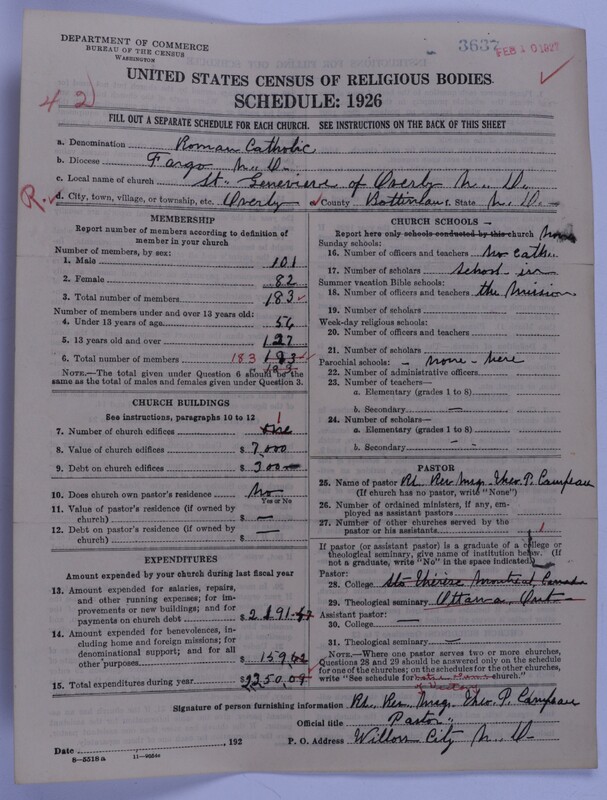 DEPARTMENT OF COMMERCE
BUREAU OF THE CENSUS
WASHINGTON
3637
FEB 10 1927
UNITED STATES CENSUS OF RELIGIOUS BODIES
SCHEDULE: 1926
42
FILL OUT A SEPARATE SCHEDULE FOR EACH CHURCH. SEE INSTRUCTIONS ON THE BACK OF THIS SHEET
a. Denomination Roman Catholic
b. Diocese Fargo N.. D.
c. Local name of church St. Genevieve of Overly N.. D.
R. d. City, town, village, or township, etc. Overly County Bottineau State N.. D.
MEMBERSHIP
Report number of members according to definition of member in your church
Number of members, by sex:
1. Male 101
2. Female 82
3. Total number of members 183
Number of members under and over 13 years old:
4. Under 13 years of age 56
5. 13 years old and over 127
6. Total number of members 183 183
NOTE.—The total given under Question 6 should be the
same as the total of males and females given under Question 3.
CHURCH BUILDINGS
See instructions, paragraphs 10 to 12
7. Number of church edifices 1 one
8. Value of church edifices $ 7,000
9. Debt on church edifices $ 300
10. Does church own pastor's residence No
Yes or No
11. Value of pastor's residence (if owned by
church) $ —
12. Debt on pastor's residence (if owned by
church) $ —
EXPENDITURES
Amount expended by your church during last fiscal year
13. Amount expended for salaries, repairs,
and other running expenses; for im-
provements or new buildings; and for
payments on church debt $
14. Amount expended for benevolences, in-
cluding home and foreign missions; for
denominational support; and for all
other purposes
15. Total expenditures during year $
CHURCH SCHOOLS
Report here only schools conducted by this church None
Sunday schools:
16. Number of officers and teachers no cath.
17. Number of scholars School in
Summer vacation Bible schools:
18. Number of officers and teachers the Mission
19. Number of scholars
Week-day religious schools:
20. Number of officers and teachers
21. Number of scholars
Parochial schools: - none - here
22. Number of administrative officers
23. Number of teachers—
a. Elementary (grades 1 to 8)
b. Secondary —
24. Number of scholars—
a. Elementary (grades 1 to 8)
b. Secondary -
PASTOR
25. Name of pastor Rt. Rev Msg. Theo. P. Campeau
(If church has no pastor, write "None")
26. Number of ordained ministers, if any, em-
ployed as assistant pastors
27. Number of other churches served by the
pastor or his assistants 1
If pastor (or assistant pastor) is a graduate of a college or
theological seminary, give name of institution below. (If
not a graduate, write "No" in the space indicated)
Pastor:
28. College Ste Thérèse Montreal Canada
29. Theological seminary Ottawa, Ont -
Assistant pastor:
30. College —
31. Theological seminary —
NOTE.—Where one pastor serves two or more churches,
Questions 28 and 29 should be answered only on the schedule
for one of the churches; on the schedules for the other churches,
write "See schedule for church."
Signature of person furnishing information Rt. Rev. Msg. Theo. P. Campeau
Official title Pastor
Date , 192 P. O. Address Willow City N.. D.
8—5518 a